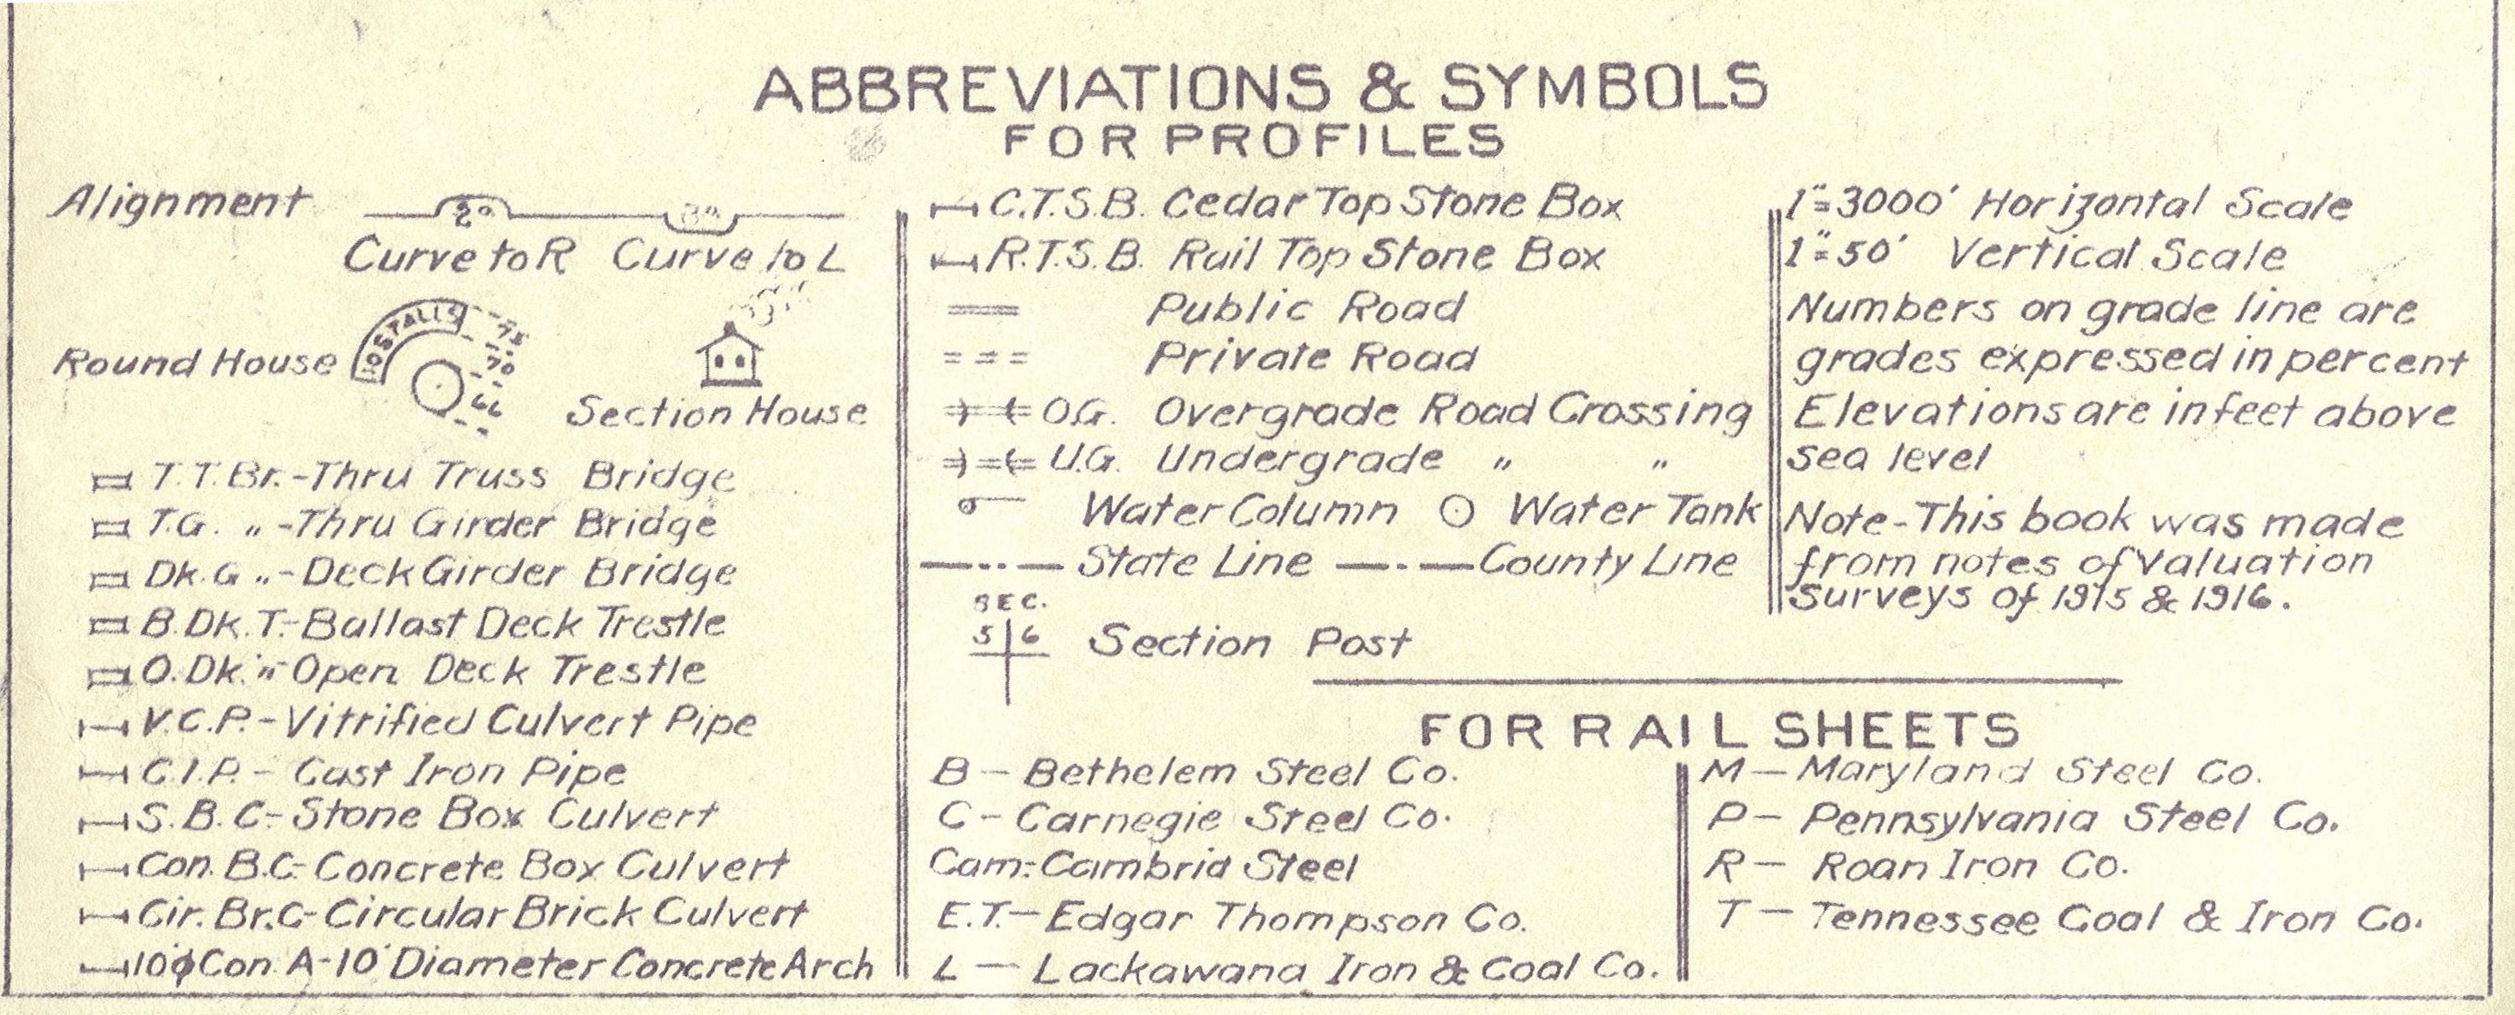 ABBREVIATIONS & SYMBOLS
FOR PROFILES
Alignment 2° 3°
Curve to R Curve to L
Round House 10 STALLS 75 70 66
Section House
T.T. Br.-Thru Truss Bridge
T.G. " -Thru Girder Bridge
Dk. G " -Deck Girder Bridge
B. Dk. T.-Ballast Deck Trestle
O. Dk. "-Open Deck Trestle
V.C.P.-Vitrified Culvert Pipe
C.I.P.- Cast Iron Pipe
S.B.C.-Stone Box Culvert
Con. B.C.-Concrete Box Culvert
Cir. Br. C-Circular Brick Culvert
10'ϕ Con. A-10' Diameter Concrete Arch
C.T.S.B. Cedar Top Stone Box
R.T.S.B. Rail Top Stone Box
Public Road
Private Road
O.G. Overgrade Road Crossing
U.G. Undergrade " "
Water Column Water Tank
State Line County Line
SEC.
5 6 Section Post
1"=3000' Horizontal Scale
1"=50' Vertical Scale
Numbers on grade line are
grades expressed in percent
Elevations are in feet above
sea level
Note-This book was made
from notes of Valuation
surveys of 1915 & 1916.
FOR RAIL SHEETS
B - Bethelem Steel Co.
C - Carnegie Steel Co.
Cam.-Cambria Steel
E.T.- Edgar Thompson Co.
L - Lackawana Iron & Coal Co.
M - Maryland Steel Co.
P - Pennsylvania Steel Co.
R - Roan Iron Co.
T - Tennessee Coal & Iron Co.